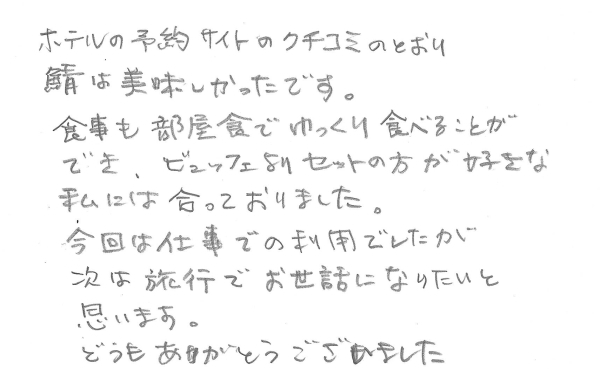 ホテルの予約サイトのクチコミのとおり
鯖は美味しかったです。
食事も部屋食でゆっくり食べることが
でき、ビュッフェよりセットの方が好きな
私には合っておりました。
今回は仕事での利用でしたが
次は旅行でお世話になりたいと
思います。
どうもありがとうございました